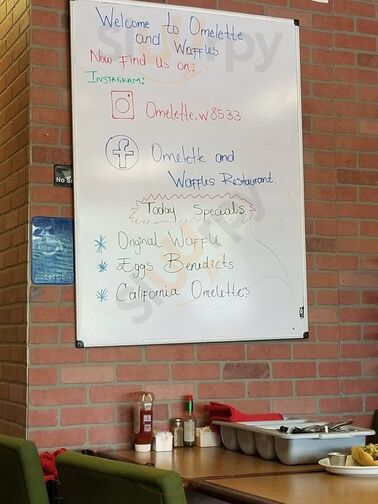 Welcome to Omelette
and Waffles
Now Find us on:
INSTAGRAM:
Omelette.w8533
Omelette and
Waffles Restaurant.
Today Specials
* Original Waffle
* Eggs Benedicts
* California Omelettes
No S